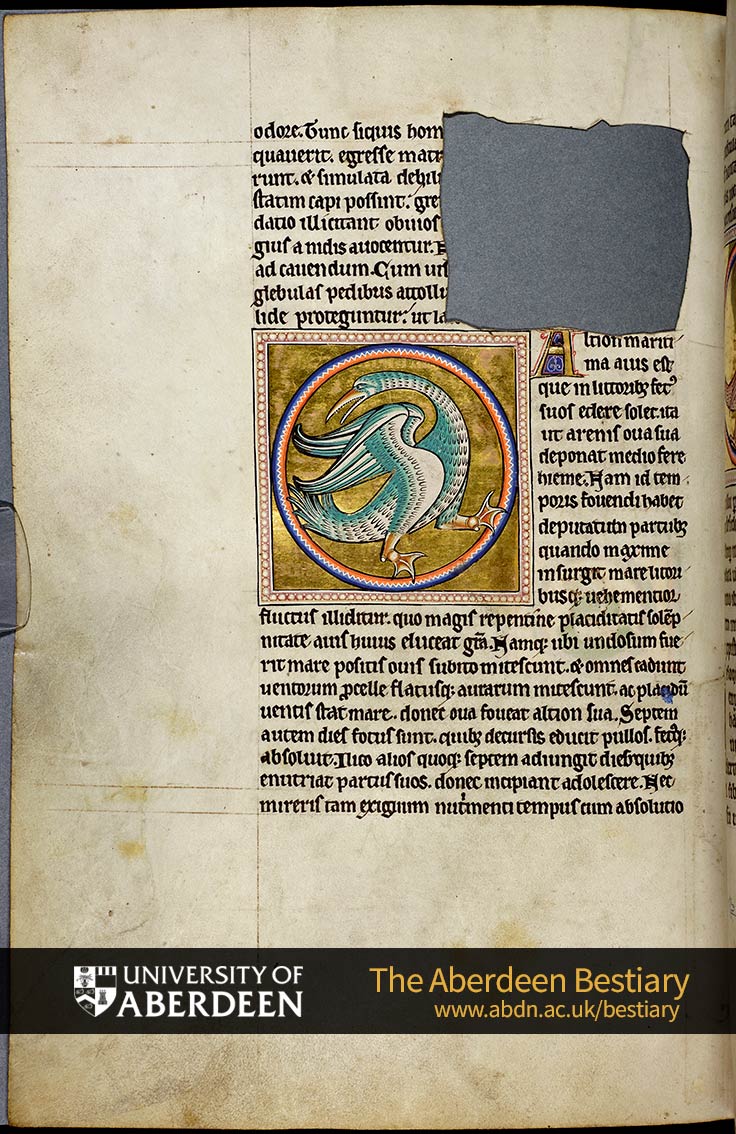 odore. Tunc siquis hom
quauerit. egresse matr
runt. & simulata debili
statim capi possint. gre
datio illicitant obuios
gius a nidis auocentur.
ad cauendum. Cum uil
glebulas pedibus attollu
lide proteguntur. ut la
Altion mariti
ma auis est
que in littorib; fet᷒
suos edere solet. ita
ut arenis oua sua
deponat medio fere
hieme. Nam id tem
poris fouendi habet
deputatum partub;
quando maxime
insurgit mare litori
busq; uehementior
fluctus illiditur. quo magis repentine placiditatis solēp
nitate auis huius eluceat grā. Namq; ubi undosum fue
rit mare positis ouis subito mitescunt. & omnes cadunt
uentorum ꝓcelle flatusq; aurarum mitescunt. ac placidū
uentis stat mare. donec oua foueat altion sua. Septem
autem dies fotus sunt. quib; decursis educit pullos. fetq;
absoluit. Ilico alios quoq; septem adiungit dies quib;
enutriat partus suos. donec incipiant adolescere. Nec
mireris tam exiguum nutmenti tempus cum absolutio
UNIVERSITY OF
ABERDEEN
The Aberdeen Bestiary
www.abdn.ac.uk/bestiary